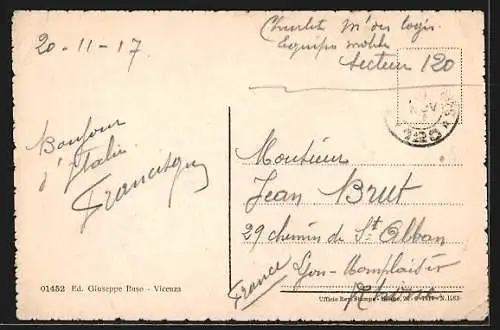 20-11-17
m<sup>is</sup> des logis
Equipe mobile
Secteur 120
220
Bonjour
d'Italie
Monsieur
Jean Brut
29 chemin de St Alban
Lyon-Monplaisir
Rhône
(France)
01452 Ed. Giuseppe Buso - Vicenza